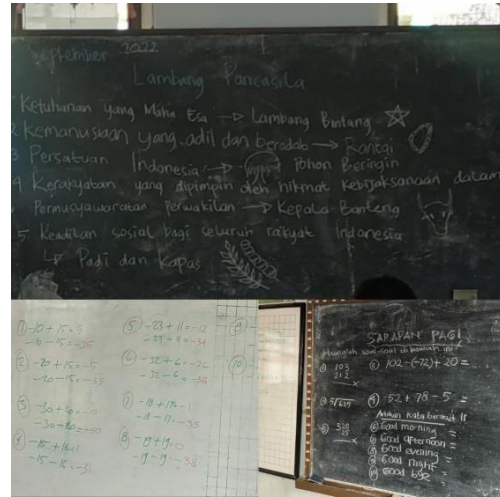 September 2022
Lambang Pancasila
Ketuhanan yang Maha Esa → Lambang Bintang
Kemanusiaan yang adil dan beradab → Rantai
3 Persatuan Indonesia → Pohon Beringin
4 Kerakyatan yang dipimpin oleh hikmat kebijaksanaan dalam
Permusyawaratan Perwakilan → Kepala Banteng
5. Keadilan sosial bagi seluruh rakyat Indonesia
↳ Padi dan Kapas
① -10 + 15 = 5
-10 - 15 = -25
② -20 + 15 = -5
-20 - 15 = -35
③ -30 + 20 = -10
④ -15 + 16 = 1
-15 - 16 = -31
⑤ -23 + 11 = -12
⑥ -32 + 6 = -26
-32 - 6 = -38
⑦ -18 + 17 = -1
-18 - 17 = -35
⑧ -19 + 19 = 0
-19 - 19 = -38
⑨
⑩
SARAPAN PAGI
Hitunglah soal-soal di bawah ini!
① 103
212
×
② 102 - (-72) + 20 =
③ 5√625
④ -52 + 78 - 5 =
⑤
×
Artikan kata berikut !!
⑥ Good morning =
⑦ Good afternoon =
⑧ Good evening =
⑨ Good night =
⑩ Good bye =